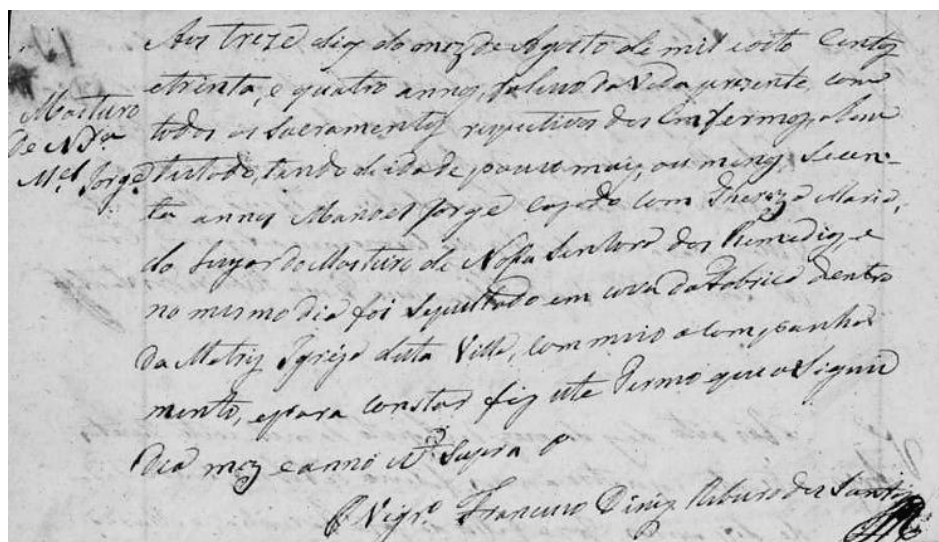 Mosteiro
de N. Sr.ª
M.el Jorge
Aos treze dias do mez de Agosto de mil oito centos
e trinta, e quatro annos, faleceo da vida prezente, com
todos os Sacramentos respectivos dos Enfermos, abem
tendo de idade pouco mais, ou menos secen-
ta annos Manoel Jorge cazado com Thereza Maria,
do Lugar do Mosteiro de Nossa Senhora dos Remedios, e
no mesmo dia foi sepultado em cova da Fabrica dentro
da Matriz Igreja desta Villa, com meio acompanha
mento, e para constar fiz este Termo que assignei
Dia mez e anno ut supra
O Vigr.º Francisco Diniz Ribeiro dos Santos